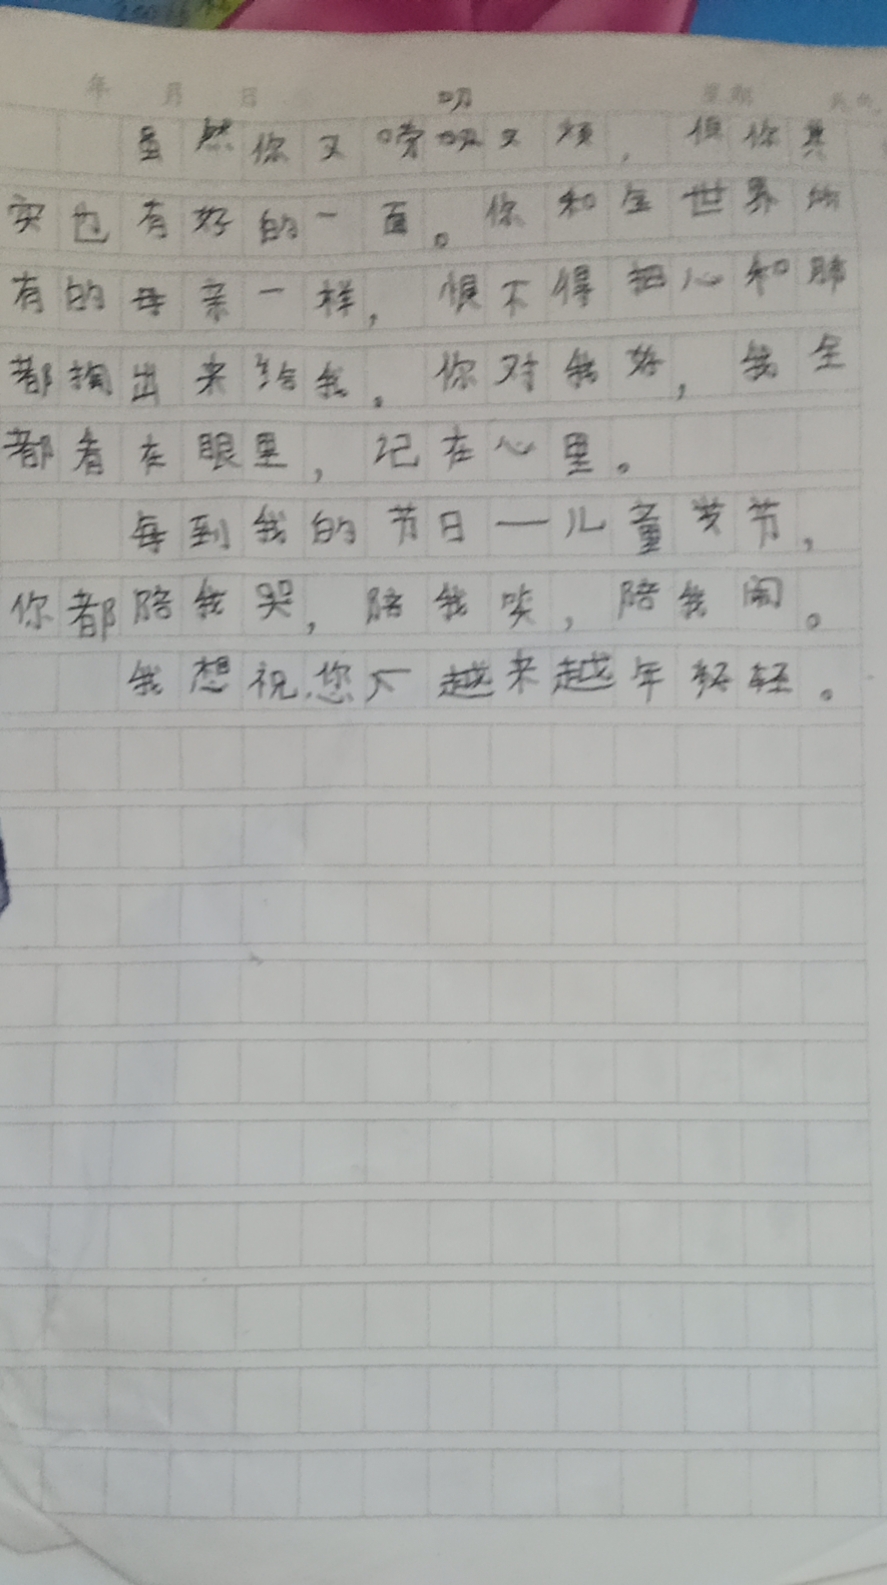 年 月 日 星期
叨
虽然你又唠叨又烦，但你其
实也有好的一面。你和全世界所
有的母亲一样，恨不得把心和肺
都掏出来给我。你对我好，我全
都看在眼里，记在心里。
每到我的节日一儿童节，
你都陪我哭，陪我笑，陪我闹。
我想祝您越来越年轻轻。